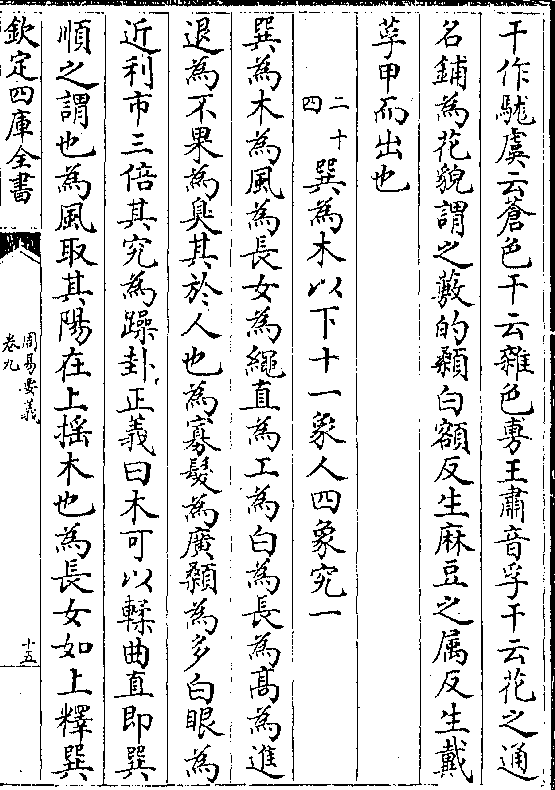 干作駹虞云蒼色干云雜色旉王肅音孚干云花之通
名鋪為花貌謂之藪的顙白額反生麻豆之属反生戴
莩甲而出也
二十四 巽為木以下十一象人四象究一
巽為木為風為長女為繩直為工為白為長為髙為進
退為不果為臭其於人也為寡髮為廣顙為多白眼為
近利市三倍其究為躁卦正義曰木可以輮曲直即巽
順之謂也為風取其陽在上揺木也為長女如上釋巽
欽定四庫全書
周易要義
卷九
十五